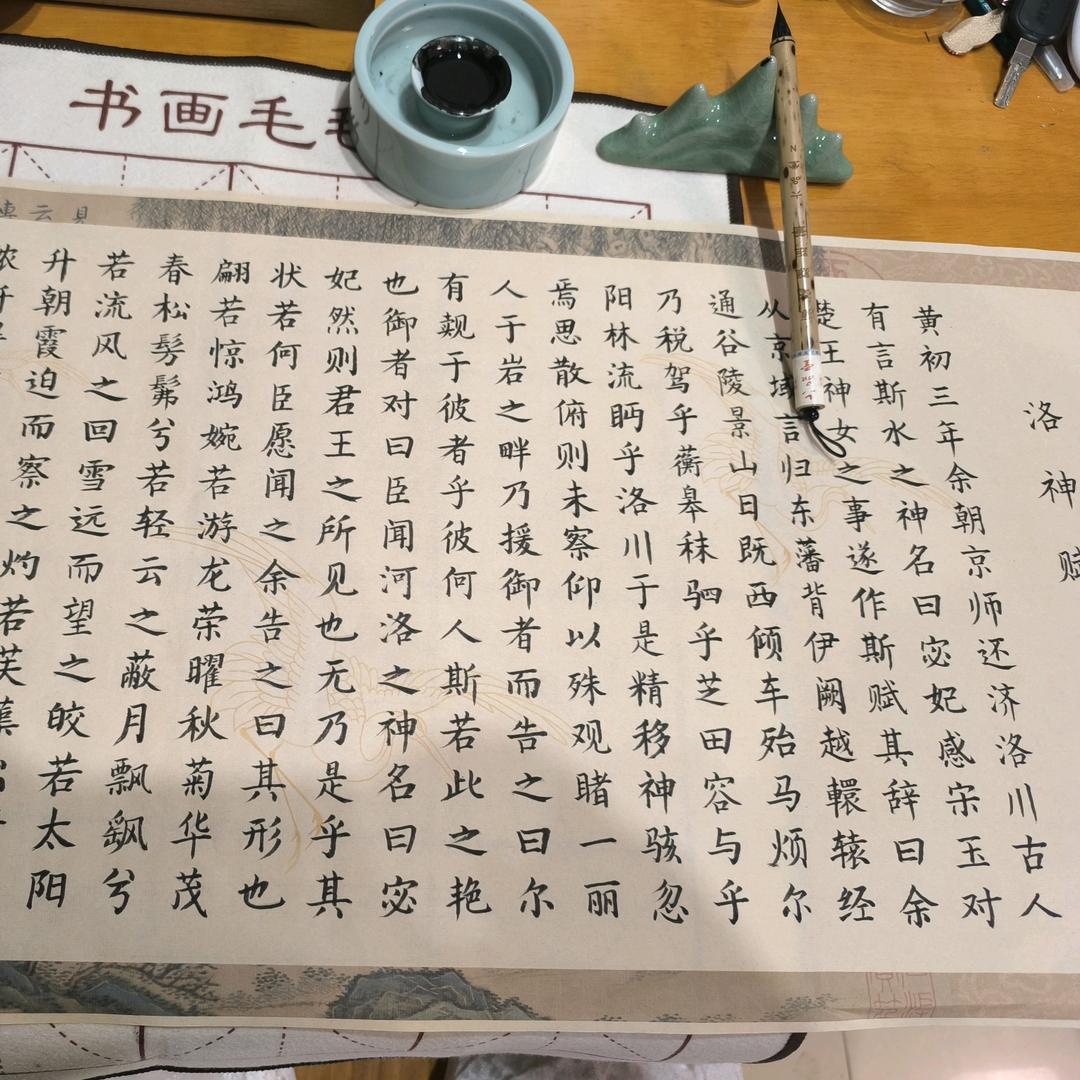 书画毛
洛神赋
黄初三年余朝京师还济洛川古人
有言斯水之神名曰宓妃感宋玉对
楚王神女之事遂作斯赋其辞曰余
从京域言归东藩背伊阙越轘辕经
通谷陵景山日既西倾车殆马烦尔
乃税驾乎蘅皋秣驷乎芝田容与乎
阳林流眄乎洛川于是精移神骇忽
焉思散俯则未察仰以殊观睹一丽
人于岩之畔乃援御者而告之曰尔
有觌于彼者乎彼何人斯若此之艳
也御者对曰臣闻河洛之神名曰宓
妃然则君王之所见也无乃是乎其
状若何臣愿闻之余告之曰其形也
翩若惊鸿婉若游龙荣曜秋菊华茂
春松髣髴兮若轻云之蔽月飘飖兮
若流风之回雪远而望之皎若太阳
升朝霞迫而察之灼若芙蕖